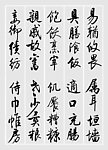 易輶攸畏 属耳垣墙
具膳飡飯 適口充腸
飽飫烹宰 飢厭糟糠
親戚故舊 老少異粮
妾御績紡 侍巾帷房